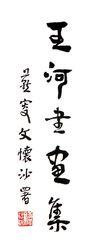 王河書畫集
燕叟文懷沙署